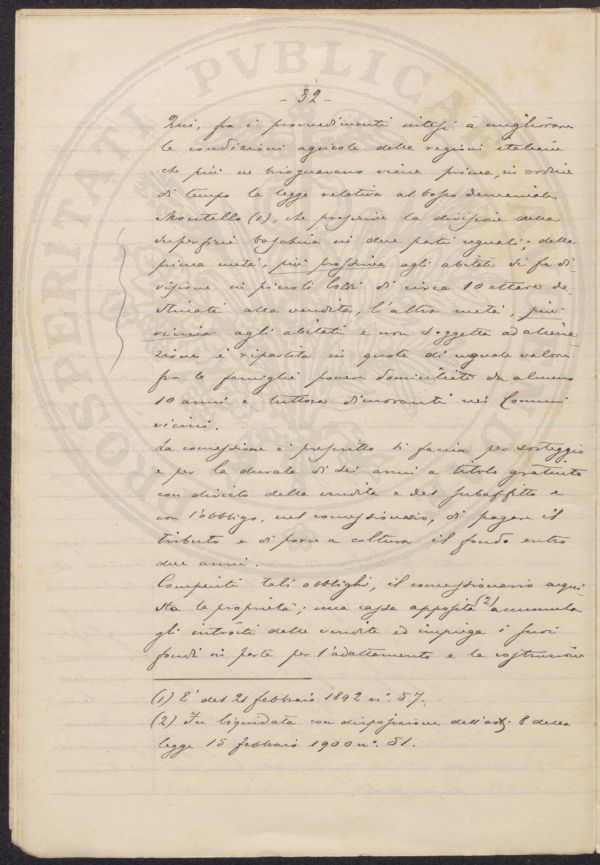 - 32 -
Qui, fra i provvedimenti intesi a migliorare
le condizioni agricole delle regioni italiane
che più ne bisognavano viene prima, in ordine
di tempo la legge relativa al bosco demaniale
Montello (1), che prescrive la divisione della
superficie boschiva in due parti uguali; della
prima metà, più prossima agli abitati si fa di-
visione in piccoli lotti di circa 10 ettare de-
stinati alla vendita, l'altra metà, più
vicina agli abitati e non soggetta ad aliena-
zione è ripartita in quote di uguale valore
fra le famiglie povere domiciliate da almeno
10 anni e tuttora dimoranti nei Comuni
vicini.
La concessione è prescritto si faccia per sorteggio
e per la durata di sei anni a titolo gratuito
con divieto della vendita e del subaffitto e
con l'obbligo, nel concessionario, di pagare il
tributo e di porre a coltura il fondo entro
due anni.
Compiuti tali obblighi, il concessionario acqui-
sta la proprietà; una cassa apposita (2) accumula
gli introiti delle vendite ed impiega i suoi
fondi in parte per l'adattamento e la costruzione
(1) È del 21 febbraio 1892 n.° 57.
(2) Fu liquidata con disposizione dell'art. 8 della
legge 15 febbraio 1900 n.° 51.
PROSPERITATI PVBLICAE